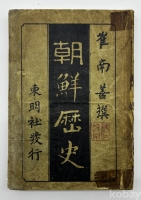 崔南善撰
朝鮮歷史
東明社發行
kobay